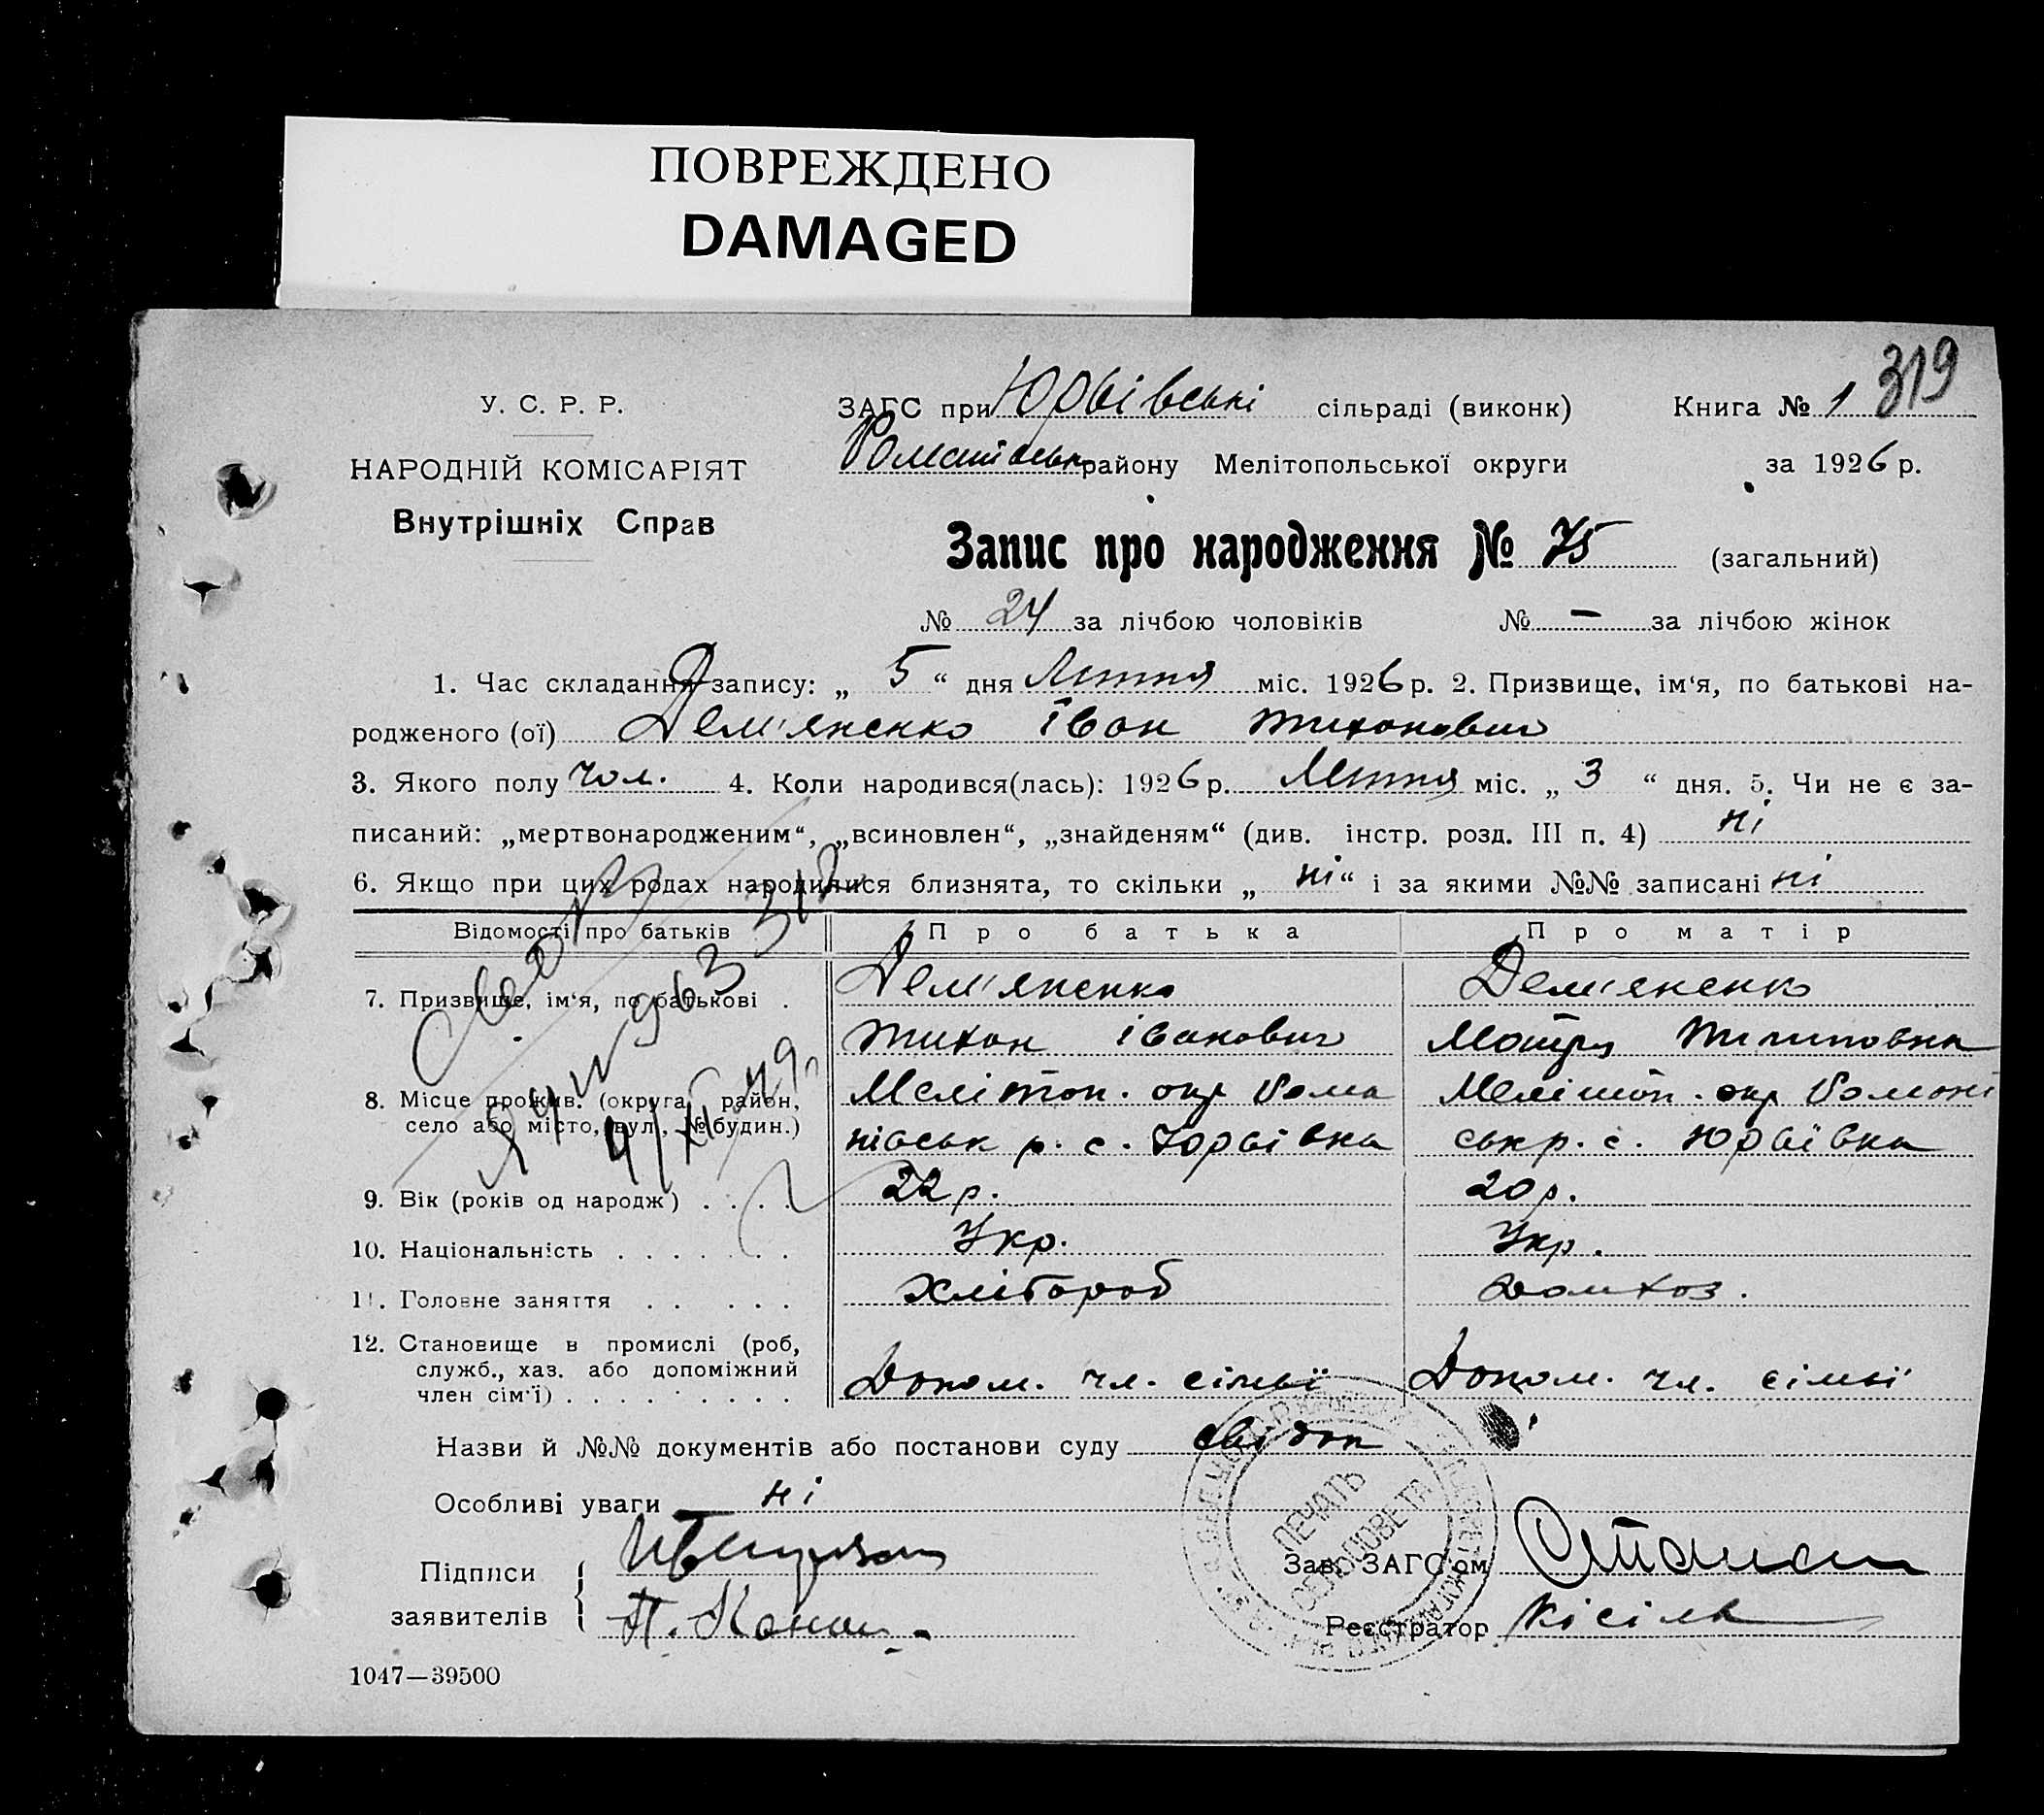 ПОВРЕЖДЕНО
DAMAGED
319
У. С. Р. Р.
НАРОДНІЙ КОМІСАРІЯТ
Внутрішніх Справ
ЗАГС при Юрвівські сільраді (виконк) Книга № 1
району Мелітопольської округи за 1926 р.
Запис про народження № 75 (загальний)
№ 24 за лічбою чоловіків № – за лічбою жінок
1. Час складання запису: „ 5 “ дня Лютня міс. 1926 р. 2. Призвище, ім‘я, по батькові на-
родженого (ої) Дем'яненко Іван Тихонович
3. Якого полу чол. 4. Коли народився(лась): 1926 р. Лютня міс. „ 3 “ дня. 5. Чи не є за-
писаний: „мертвонародженим“, „всиновлен“, „знайденям“ (див. інстр. розд. III п. 4) ні
6. Якщо при цих родах народилися близнята, то скільки „ ні “ і за якими №№ записані ні
Відомості про батьків Про батька Про матір
7. Призвище, ім‘я, по батькові . Дем'яненко Дем'яненко
Тихон Іванович Мотря
8. Місце прожив. (округа, район, Мелітоп. окр Рома Меліттоп. окр Романі
село або місто, вул., № будин.) нівськ р. с. Юрвівка ськ р. с. Юрвівка
9. Вік (років од народж) . . . . 22 р. 20 р.
10. Національність . . . . . . . Укр. Укр.
11. Головне заняття . . . . . Хлібороб домхоз.
12. Становище в промислі (роб,
служб., хаз. або допоміжний
член сім'ї) . . . . . . . . . Допом. чл. сімьї Допом. чл. сімьї
Назви й №№ документів або постанови суду свідоц
Особливі уваги ні
Підписи
заявителів
Зав. ЗАГС'ом
Реєстратор Кісіль
ПЕЧАТЬ
СЕЛЬСОВЕТА
1047—39500